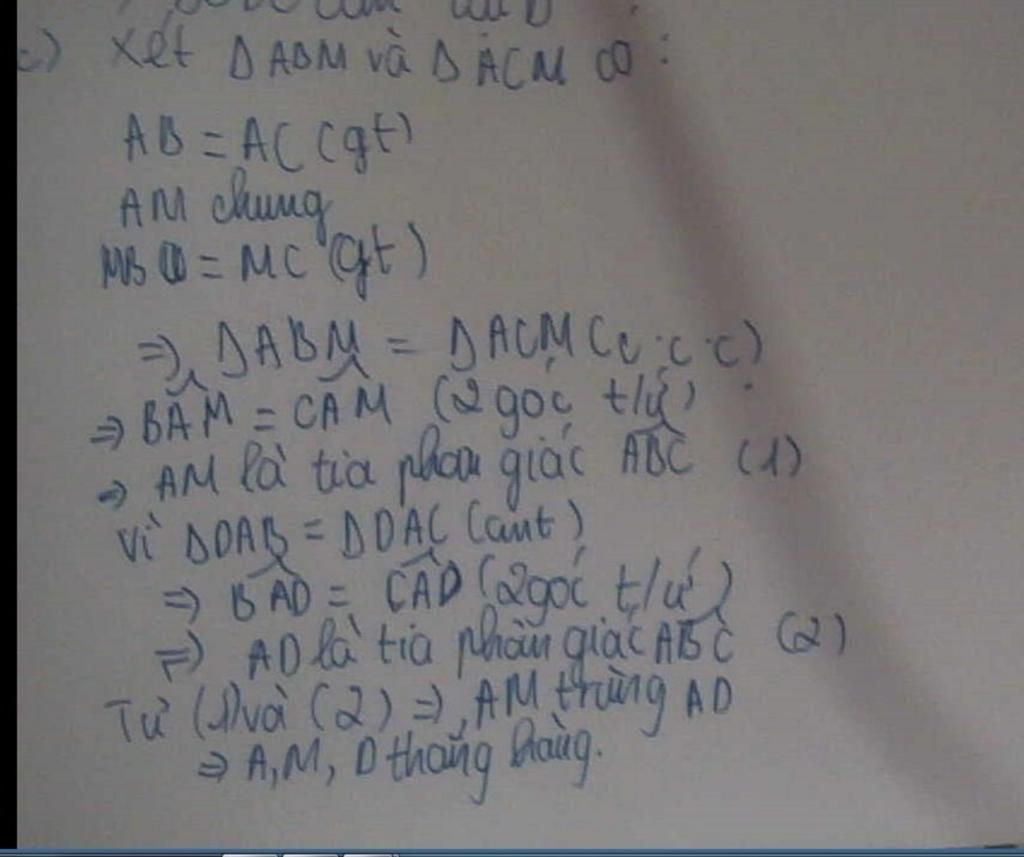 c) Xét ΔABM và ΔACM có:
AB = AC (gt)
AM chung
MB = MC (gt)
⇒ ΔABM = ΔACM (c.c.c)
⇒ BÂM = CÂM (2 góc t/ứ)
⇒ AM là tia phân giác ABC (1)
Vì ΔDAB = ΔDAC (cmt)
⇒ BÂD = CÂD (2 góc t/ứ)
⇒ AD là tia phân giác ABC (2)
Từ (1) và (2) ⇒ AM trùng AD
⇒ A, M, D thẳng hàng.